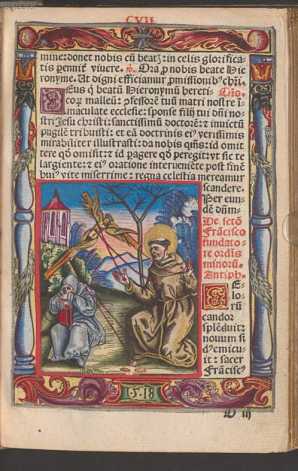 CVII
mine: donet nobis cū beat⁊ in celis glorifica-
tis pennif viuere. Ora p nobis beate Hie
ronyme. Ut digni efficiamur pmissionib⁹ chri.
Deus q beatū Hieronymū hereti-
coꝝ malleū: pfessorē tuū matri nostre im-
maculate ecclesie: sponse filij tui dñi no-
stri Jesu christi: sanctissimū doctorē: ⁊ inuictū
pugilē tribuisti: et eā doctrinis ei⁹ verissimis
mirabiliter illustrasti: da nobis qm̄s: id omit
tere qd̄ omisit: id pagere qd̄ peregit: vt sic te
largiente: ⁊ ei⁹ oratione interueniēte post finē
hui⁹ vite miserrime: regna celestia mereamur
scandere.
Per eun-
dē dn̄m-
De. sctō
Frācisco
fundato-
re ordis
minorū.
Antiph.
Celorū
candor
splēduit:
nouum si
d⁹ emicu-
it: sacer
Frāciscꝰ
1518